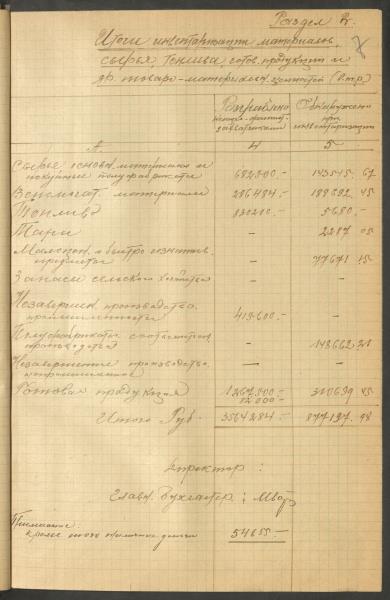 Раздел 2.
Итоги инвентаризации материалов,
сырья, топлива, готов. продукции и
др. товаро-материальн. ценностей (в т.р.)
7
Обнаружено
при
инвентаризации
А 4 5
Сырье основн. материалы и
покупные полуфабрикаты 682800.- 143545. 67
Вспомогат. материалы 286484.- 188682. 45
Топливо 830200.- 5680.-
Тара - 2287 05
Малоцен. и быстро изнашив.
предметы - 77671. 15
Запасы сельского хозяйства - -
Незавершен. производство
промышленности 419600.- -
Полуфабрикаты
производства - 148662. 21
Незавершенное производство
- -
Готовая продукция 310639 45
12000.-
Итого Руб. 3564284.- 877197. 98
Директор:
Главн. Бухгалтер:
Примечание:
кроме того наличные деньги 54655.-